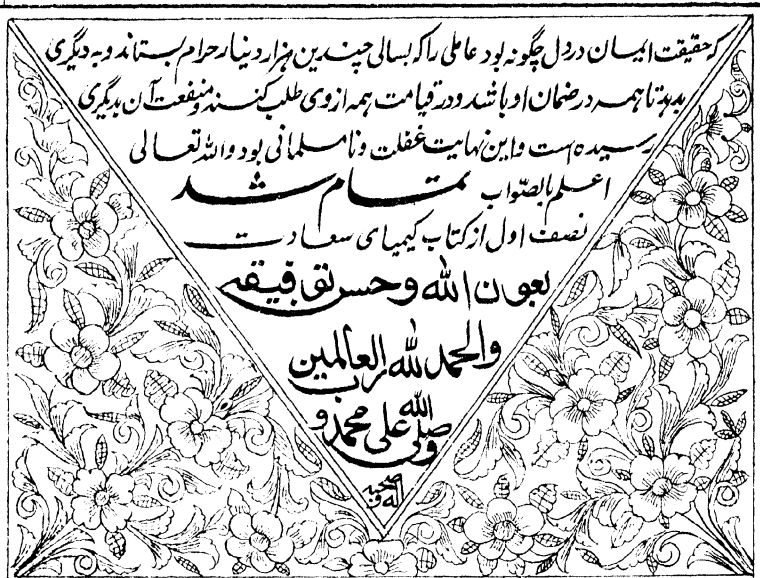 که حقیقت ایمان در دل چگونه بود عاملی را که بسالی چندین هزار دینار حرام بستاند و به دیگری
بدهد تا همه در ضمان او باشد و در قیامت همه از وی طلب کنند و منفعت آن بدیگری
رسیده است و این نهایت غفلت و نامسلمانی بود والله تعالی
اعلم بالصّواب تمام شد
نصف اول از کتاب کیمیای سعادت
بعون الله وحسن توفیقه
والحمد لله رب العالمین
وصلی الله علی محمد و
آله و صحبه